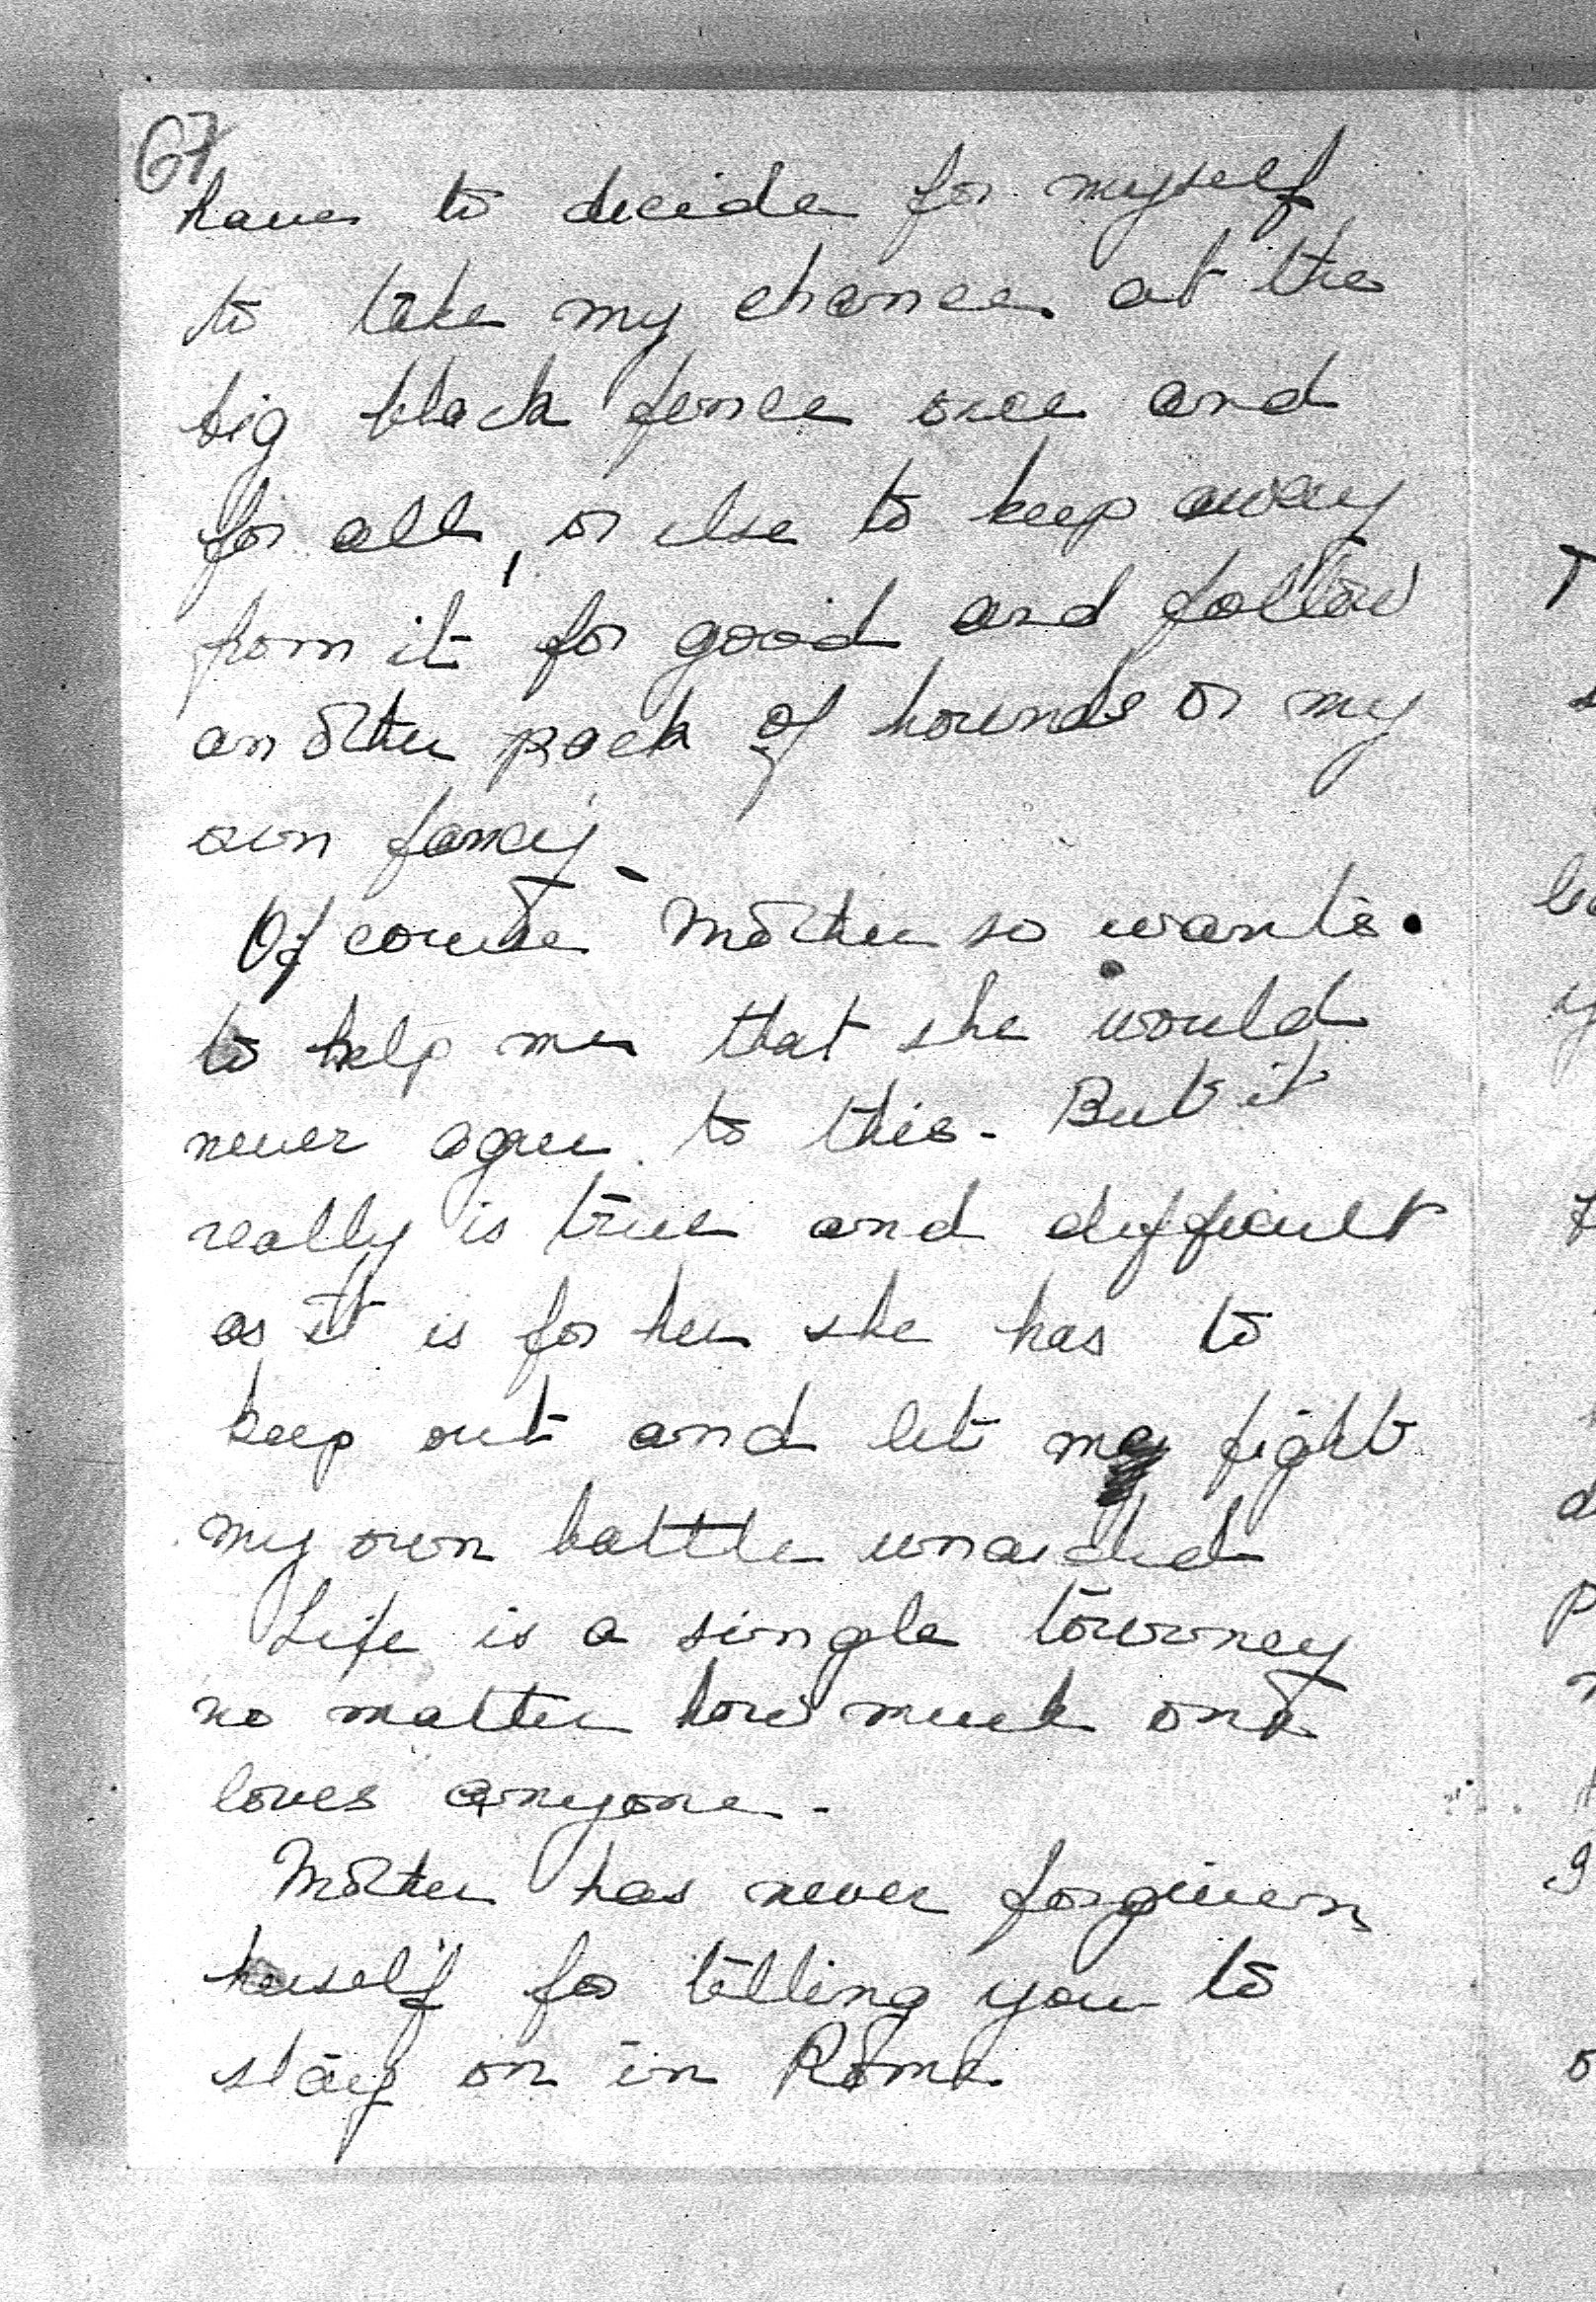 67
have to decide for myself
to take my chance at the
big black fence once and
for all, or else to keep away
from it for good and follow
another pack of hounds or my
own fancy.
Of course Mother so wants
to help me that she would
never agree to this. But it
really is true and difficult
as it is for her she has to
keep out and let me fight
my own battle unaided
Life is a single tourney
no matter how much one
loves anyone.
Mother has never forgiven
herself for telling you to
stay on in Rome